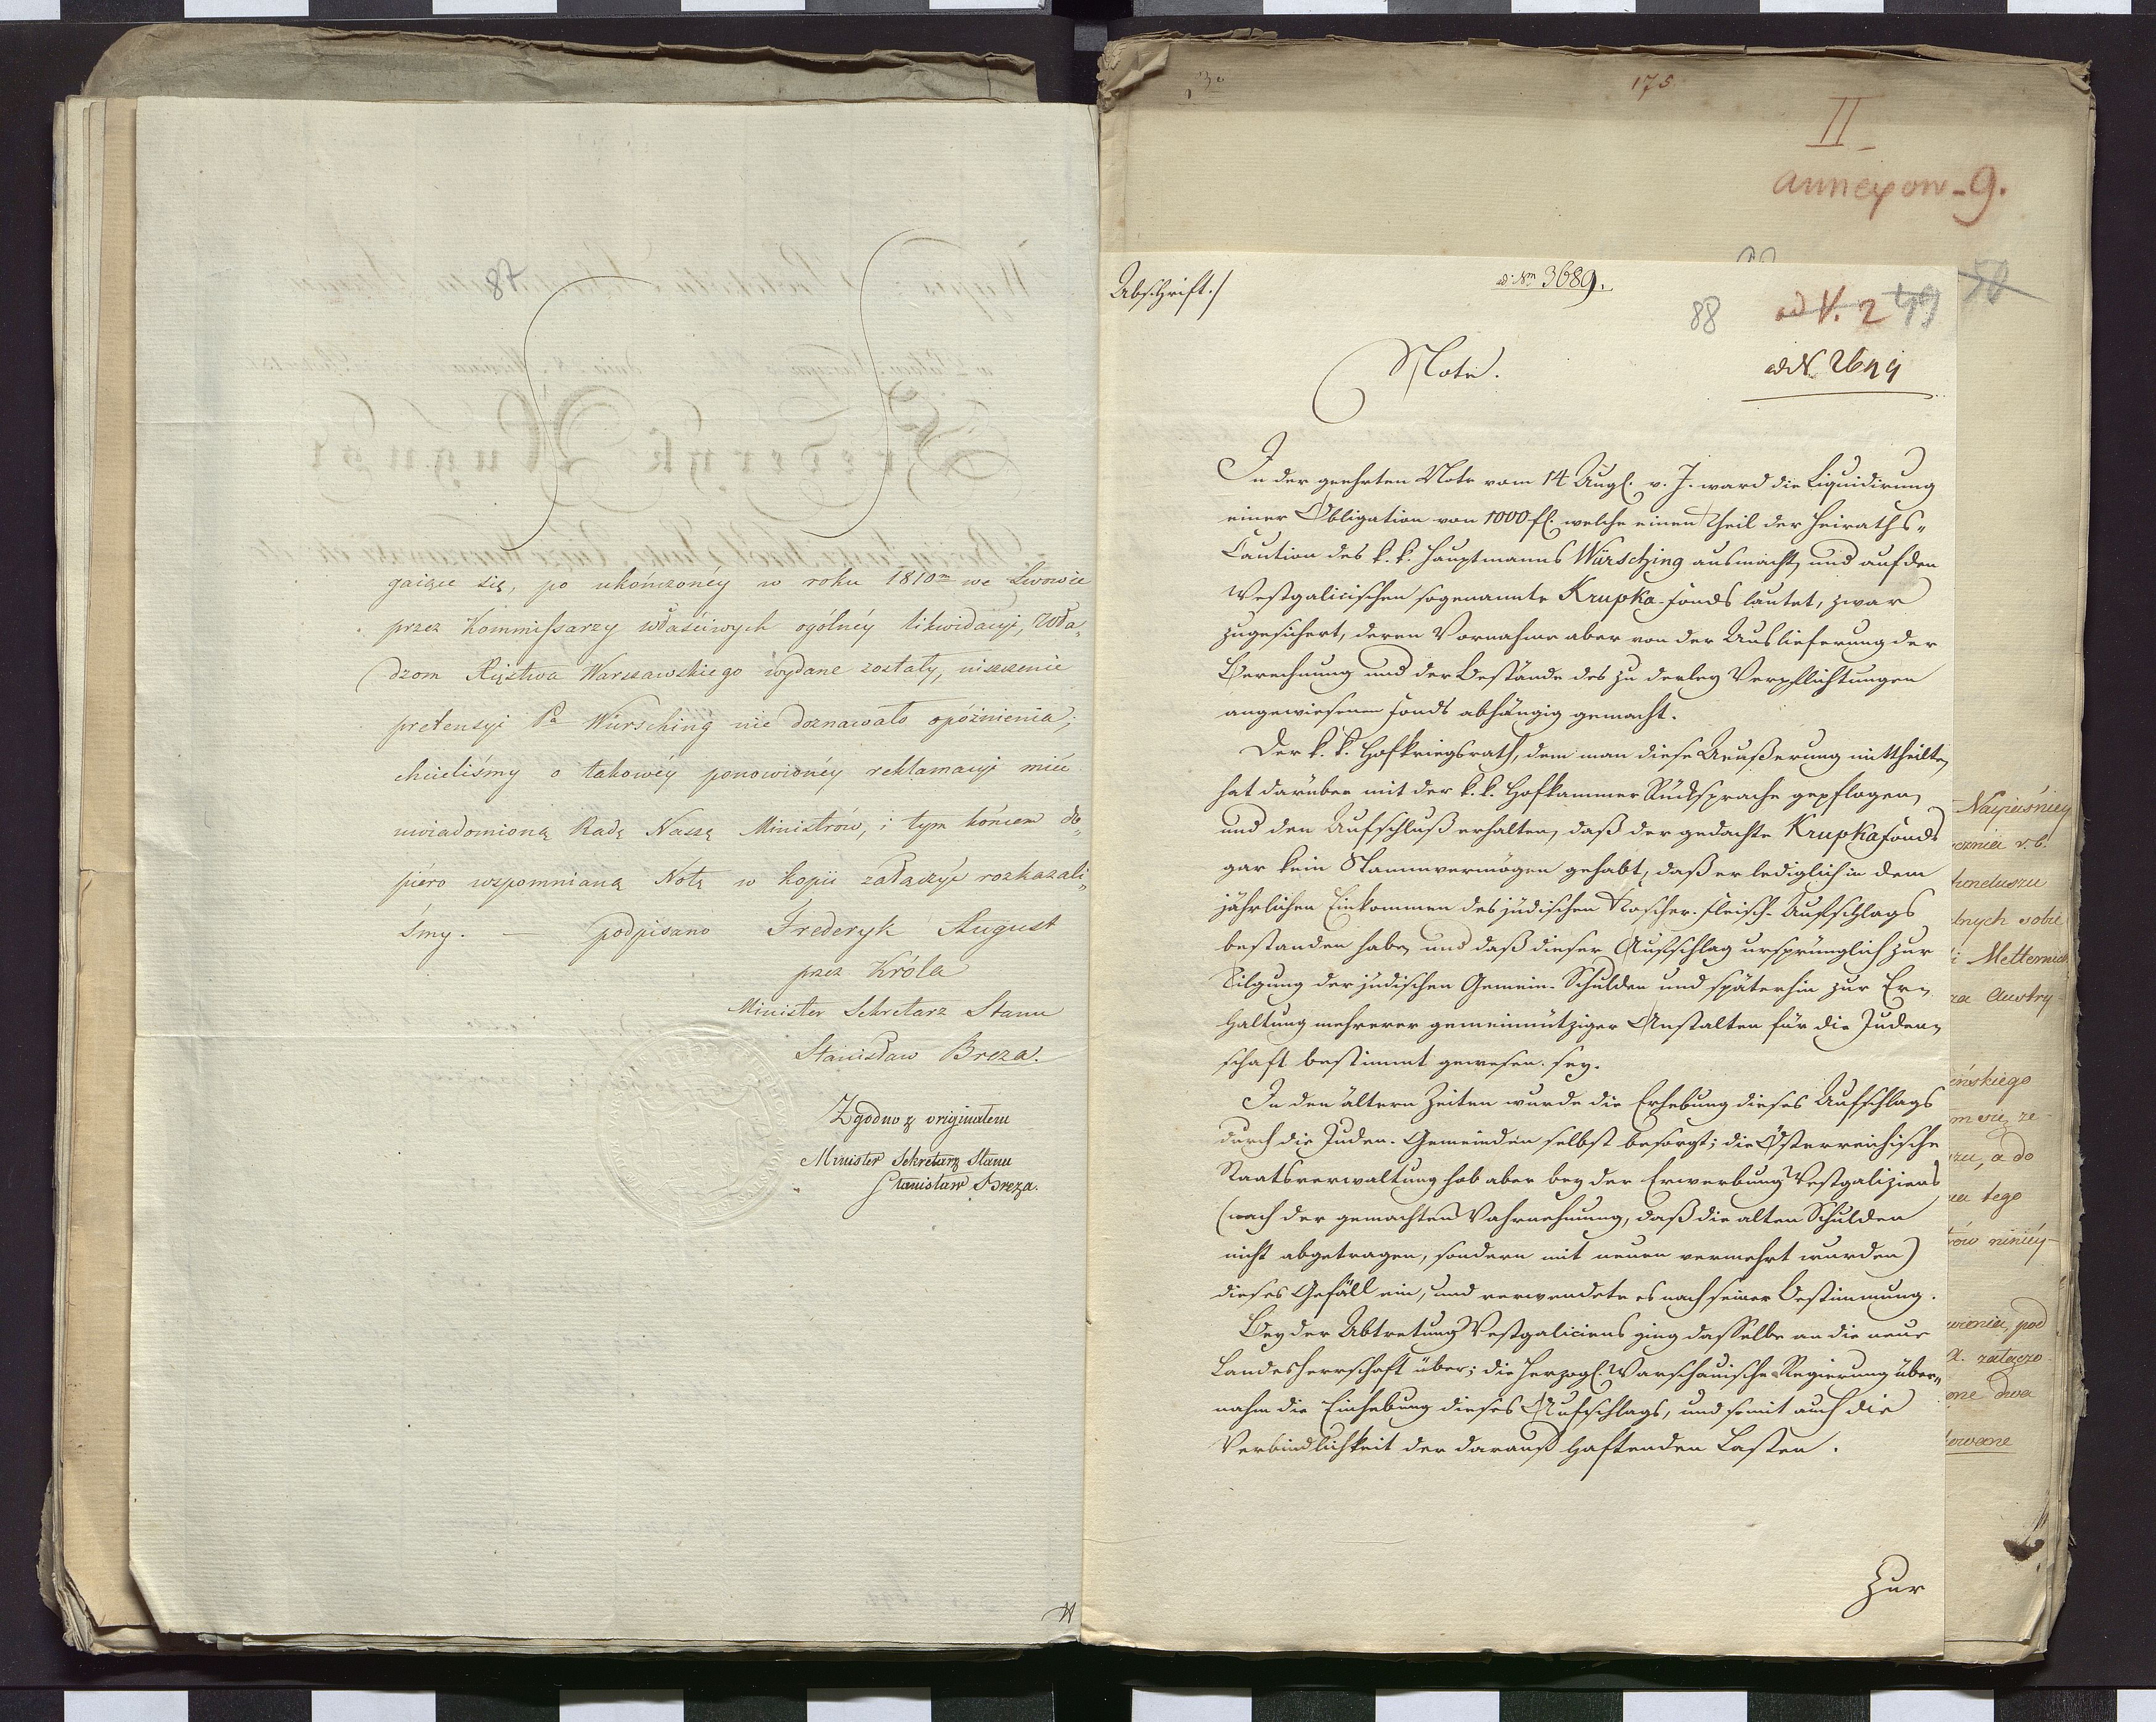 gaiące się, po ukończonéy w roku 1810m we Lwowie
przez Kommissarzy właściwych ogólnéy likwidacyi, Wła„
dzom Xięstwa Warszawskiego wydane zostały, niszczenie
pretensyi Pa Würsching nie doznawało opóźnienia;
chcieliśmy o takowéy ponowionéy reklamacyi mieć
uwiadomioną Radę Naszą Ministrow, i tym końcem do„
piero wspomnianą Notę w kopii załączyć rozkazali„
śmy. — podpisano Frederyk August
przez Króla
Minister Sekretarz Stanu
Stanisław Breza.
Zgodno z originałem
Minister Sekretarz Stanu
Stanisław Breza.
175
II
annexow - 9.
Abschrift./
ad Nm 3689.
88 ad V. 2 49 50
Note.
In der geehrten Note vom 14 Augs. v. J. ward die Liquidirung
einer Obligation von 1000 fl. welche einen Theil der Heiraths„
Caution des k. k. Hauptmanns Würsching ausmacht, und auf den
Westgalicischen sogenannte Krupka-Fonds lautet, zwar
zugesichert, deren Vornahme aber von der Auslieferung der
Berechnung und der Bestände des zu derley Verpflichtungen
angewiesenen Fonds abhängig gemacht.
Der k. k. Hofkriegsrath, dem man diese Aeußerung mittheilte,
hat darüber mit der k. k. Hofkammer Rücksprache gepflogen,
und den Aufschluß erhalten, daß der gedachte Krupkafonds
gar kein Stammvermögen gehabt, daß er lediglich in dem
jährlichen Einkommen des jüdischen Koscher-Fleisch-Aufschlags
bestanden habe, und daß dieser Aufschlag ursprünglich zur
Tilgung der jüdischen Gemein-Schulden und späterhin zur Er„
haltung mehrerer gemeinnütziger Anstalten für die Juden„
schaft bestimmt gewesen sey.
In den ältern Zeiten wurde die Erhebung dieses Aufschlags
durch die Juden-Gemeinden selbst besorgt; die Österreichische
Staatsverwaltung hob aber bey der Erwerbung Westgaliziens
(nach der gemachten Wahrnehmung, daß die alten Schulden
nicht abgetragen, sondern mit neuen vermehrt wurden)
dieses Gefäll ein, und verwendete es nach seiner Bestimmung.
Bey der Abtretung Westgaliciens ging dasselbe an die neue
Landesherrschaft über; die Herzogl. Warschauische Regierung über„
nahm die Einhebung dieses Aufschlags, und somit auch die
Verbindlichkeit der darauf haftenden Lasten.
Zur
Nayiaśniey
honduszu
lnych sobie
i Metternich
za Austry-
eńskiego
zu, a do
na tego
rów niniéy-
wienia, pod
A. załączo-
one dwa